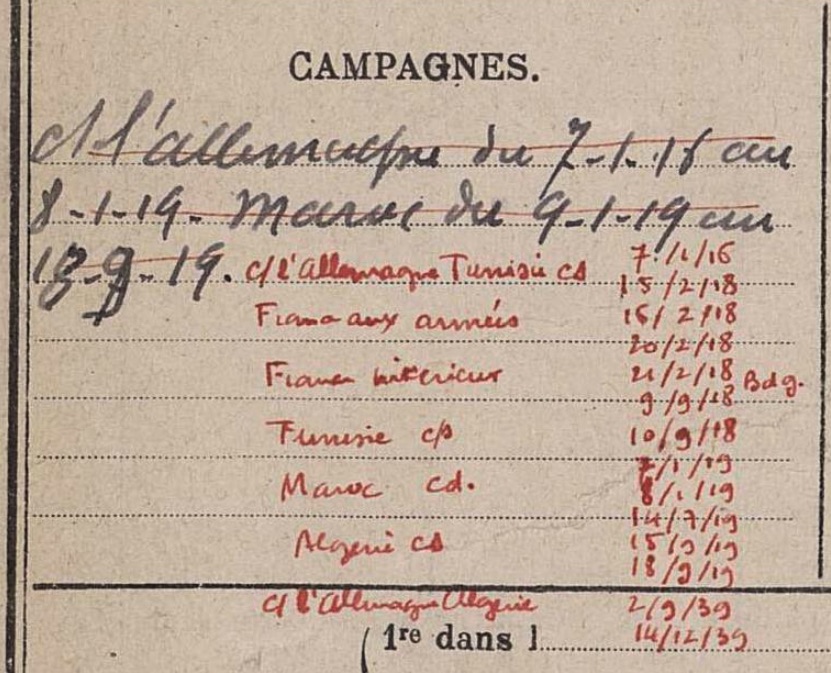 CAMPAGNES.
c/ l'allemagne du 7-1-16 au
8-1-19. Maroc du 9-1-19 au
18-9-19. c/ l'Allemagne Tunisie cd 7/1/16
15/2/18
France aux armées 16/2/18
20/2/18
France intérieur 21/2/18 Bdg.
9/9/18
Tunisie 10/9/18
7/1/19
Maroc cd. 8/1/19
14/7/19
Algerie 15/9/19
18/9/19
c/ l'Allemagne Algerie 2/9/39
14/12/39
1re dans l